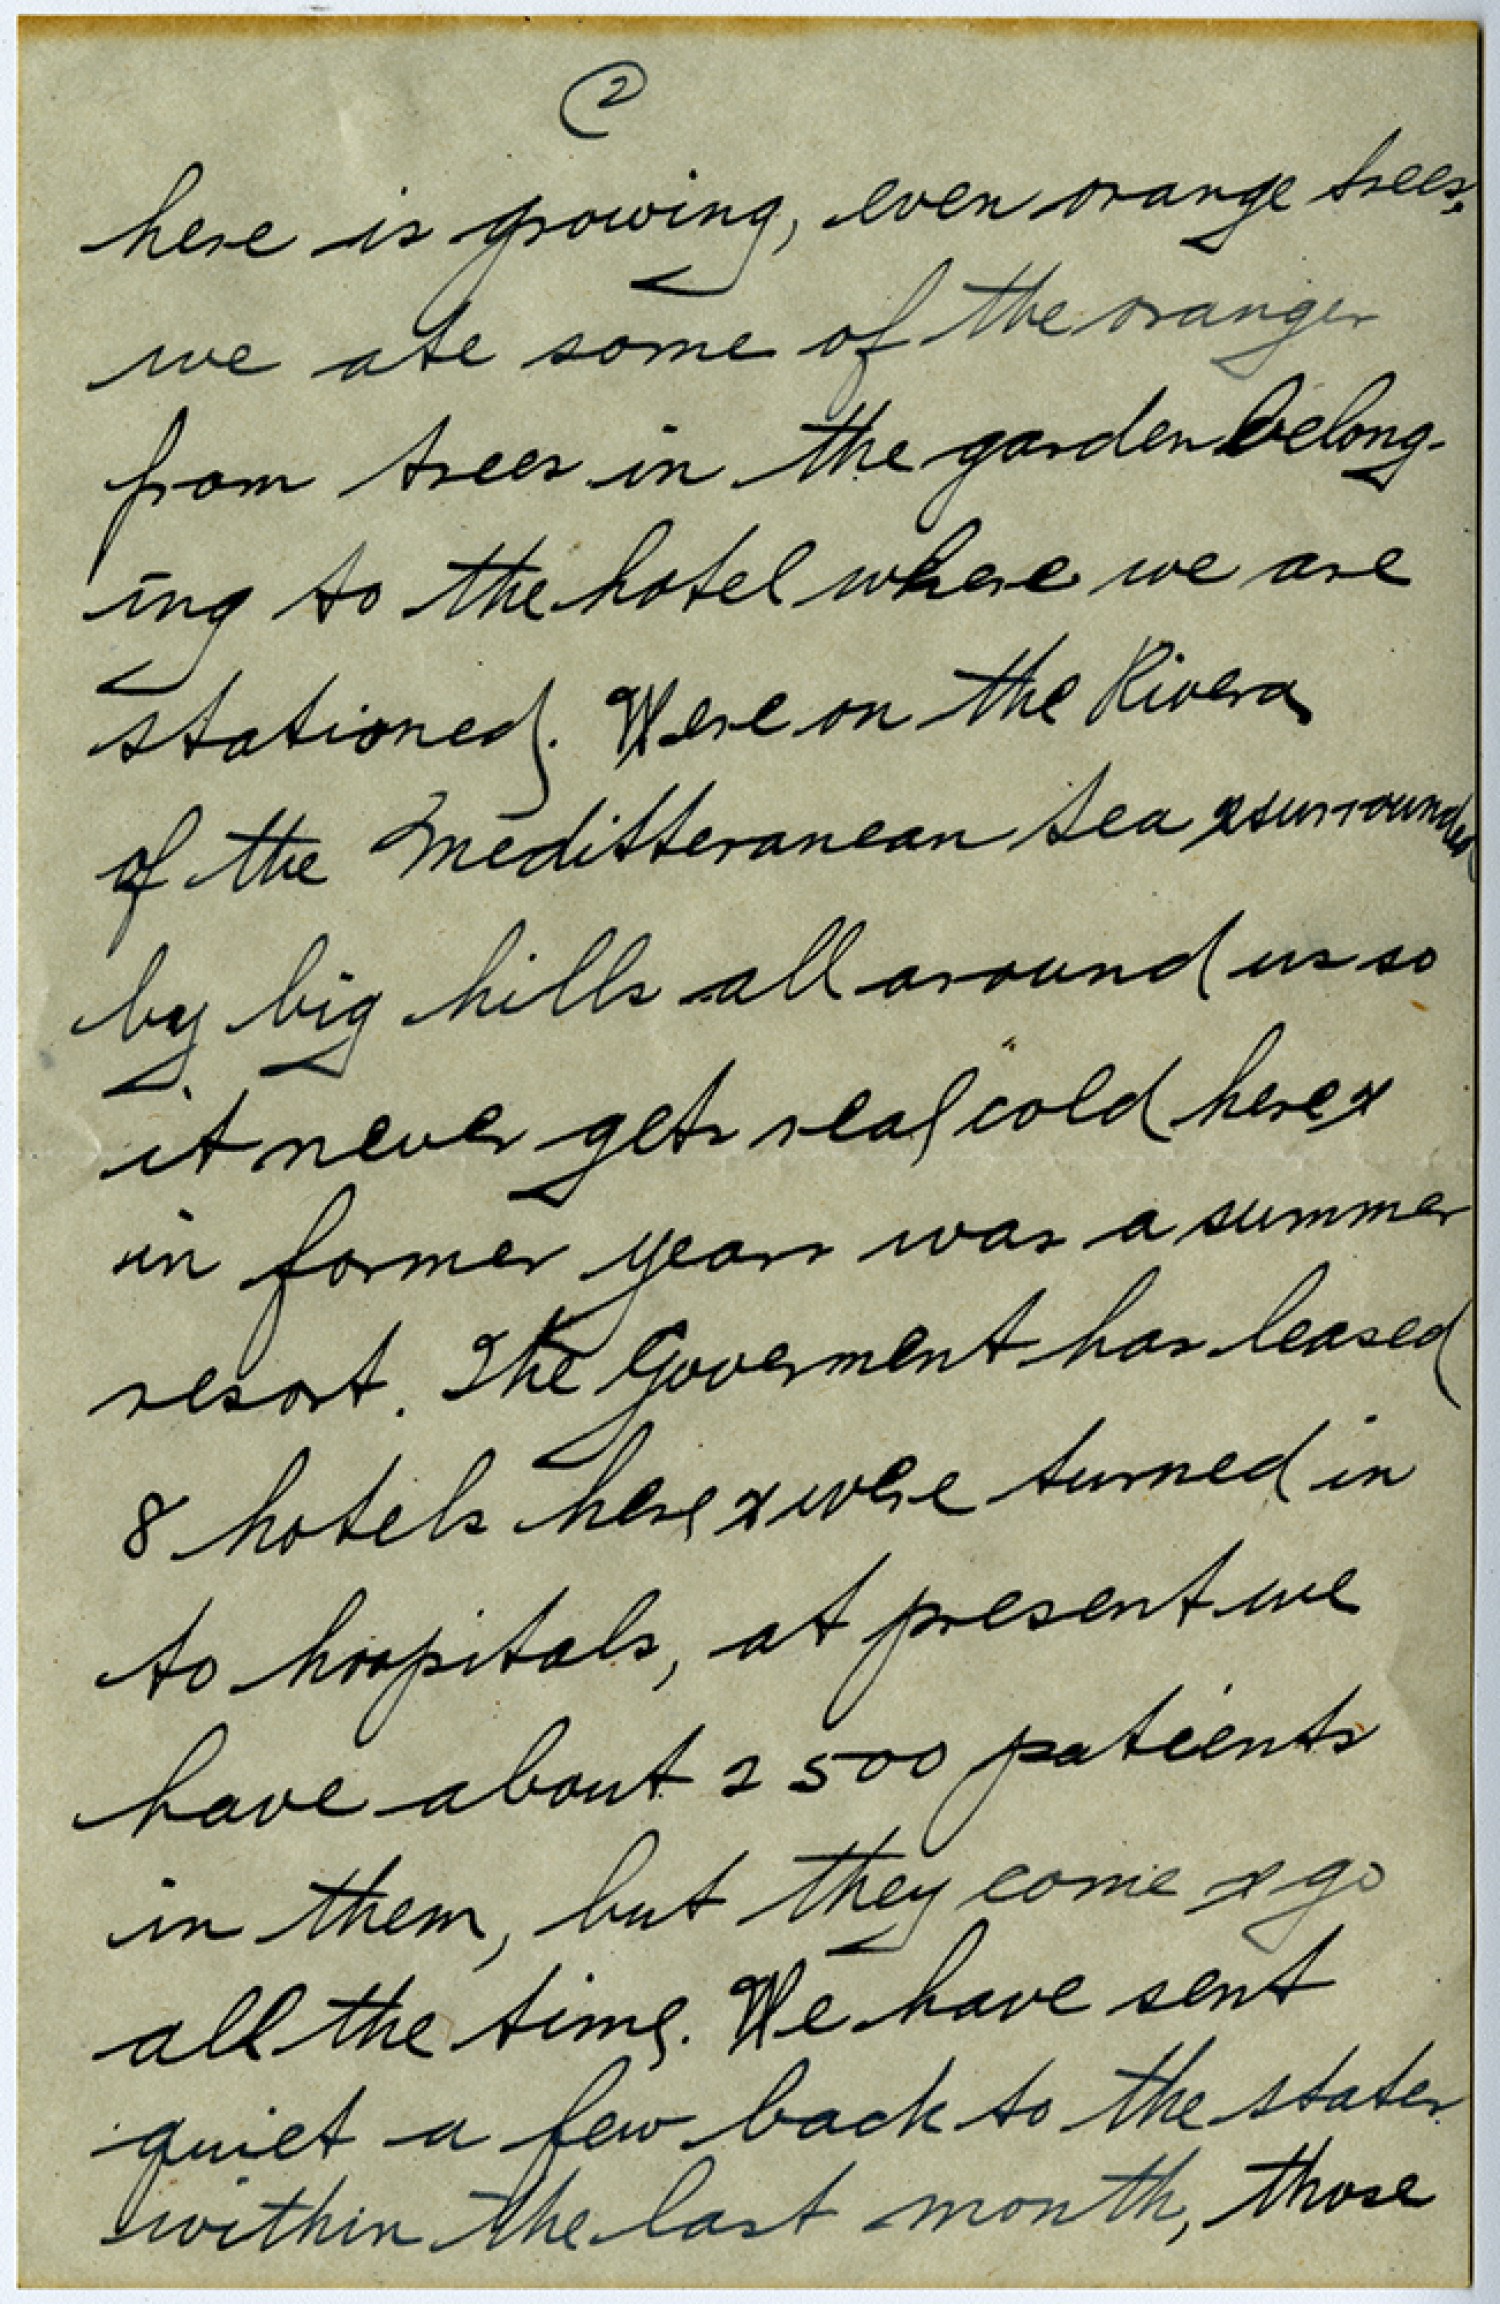 2
here is growing, even orange trees,
we ate some of the oranges
from trees in the garden belong-
ing to the hotel where we are
stationed. Were on the Rivera
of the Meditteranean sea & surrounded
by big hills all around us so
it never gets real cold here &
in former years was a summer
resort. The Goverment has leased
8 hotels here & were turned in
to hospitals, at present we
have about 2500 patients
in them, but they come & go
all the time. We have sent
quiet a few back to the states
within the last month, those